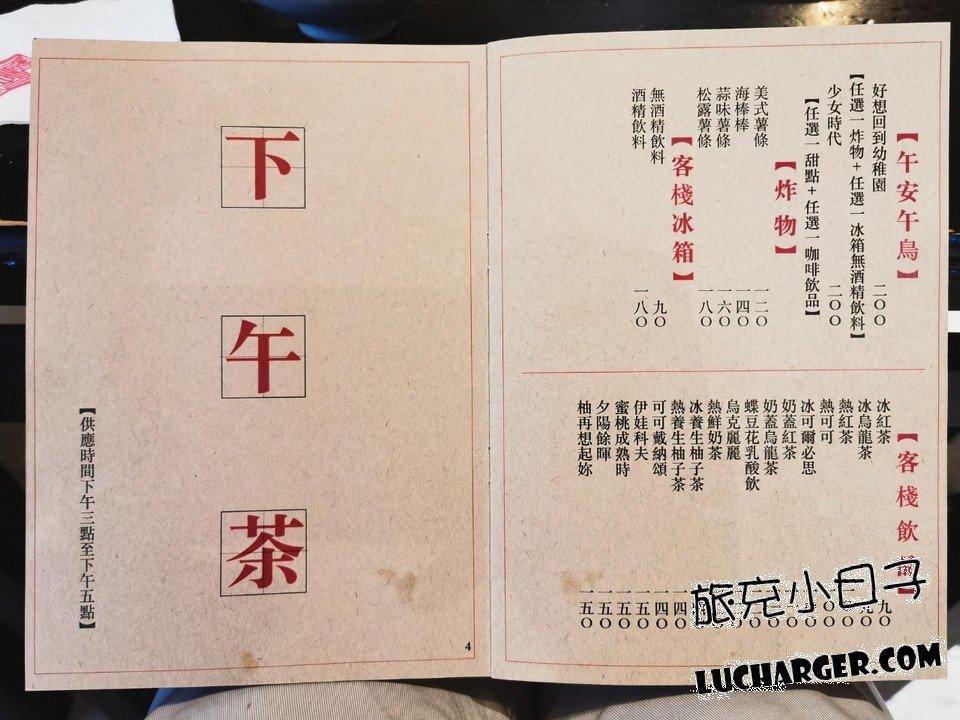 下午茶
【供應時間下午三點至下午五點】
4
【午安午鳥】
好想回到幼稚園 二〇〇
【任選一炸物+任選一冰箱無酒精飲料】
少女時代 二〇〇
【任選一甜點+任選一咖啡飲品】
【炸物】
美式薯條 一二〇
海棒棒 一四〇
蒜味薯條 一六〇
松露薯條 一八〇
【客棧冰箱】
無酒精飲料 九〇
酒精飲料 一八〇
【客棧飲
冰紅茶 九〇
冰烏龍茶
熱紅茶
熱可可
冰可爾必思
奶蓋紅茶
奶蓋烏龍茶
蝶豆花乳酸飲
烏克麗麗
熱鮮奶茶
冰養生柚子茶
熱養生柚子茶 一四〇
可可戴納頌 一四〇
伊娃科夫 一五〇
蜜桃成熟時 一五〇
夕陽餘暉 一五〇
柚再想起妳 一五〇
旅充小日子
LUCHARGER.COM